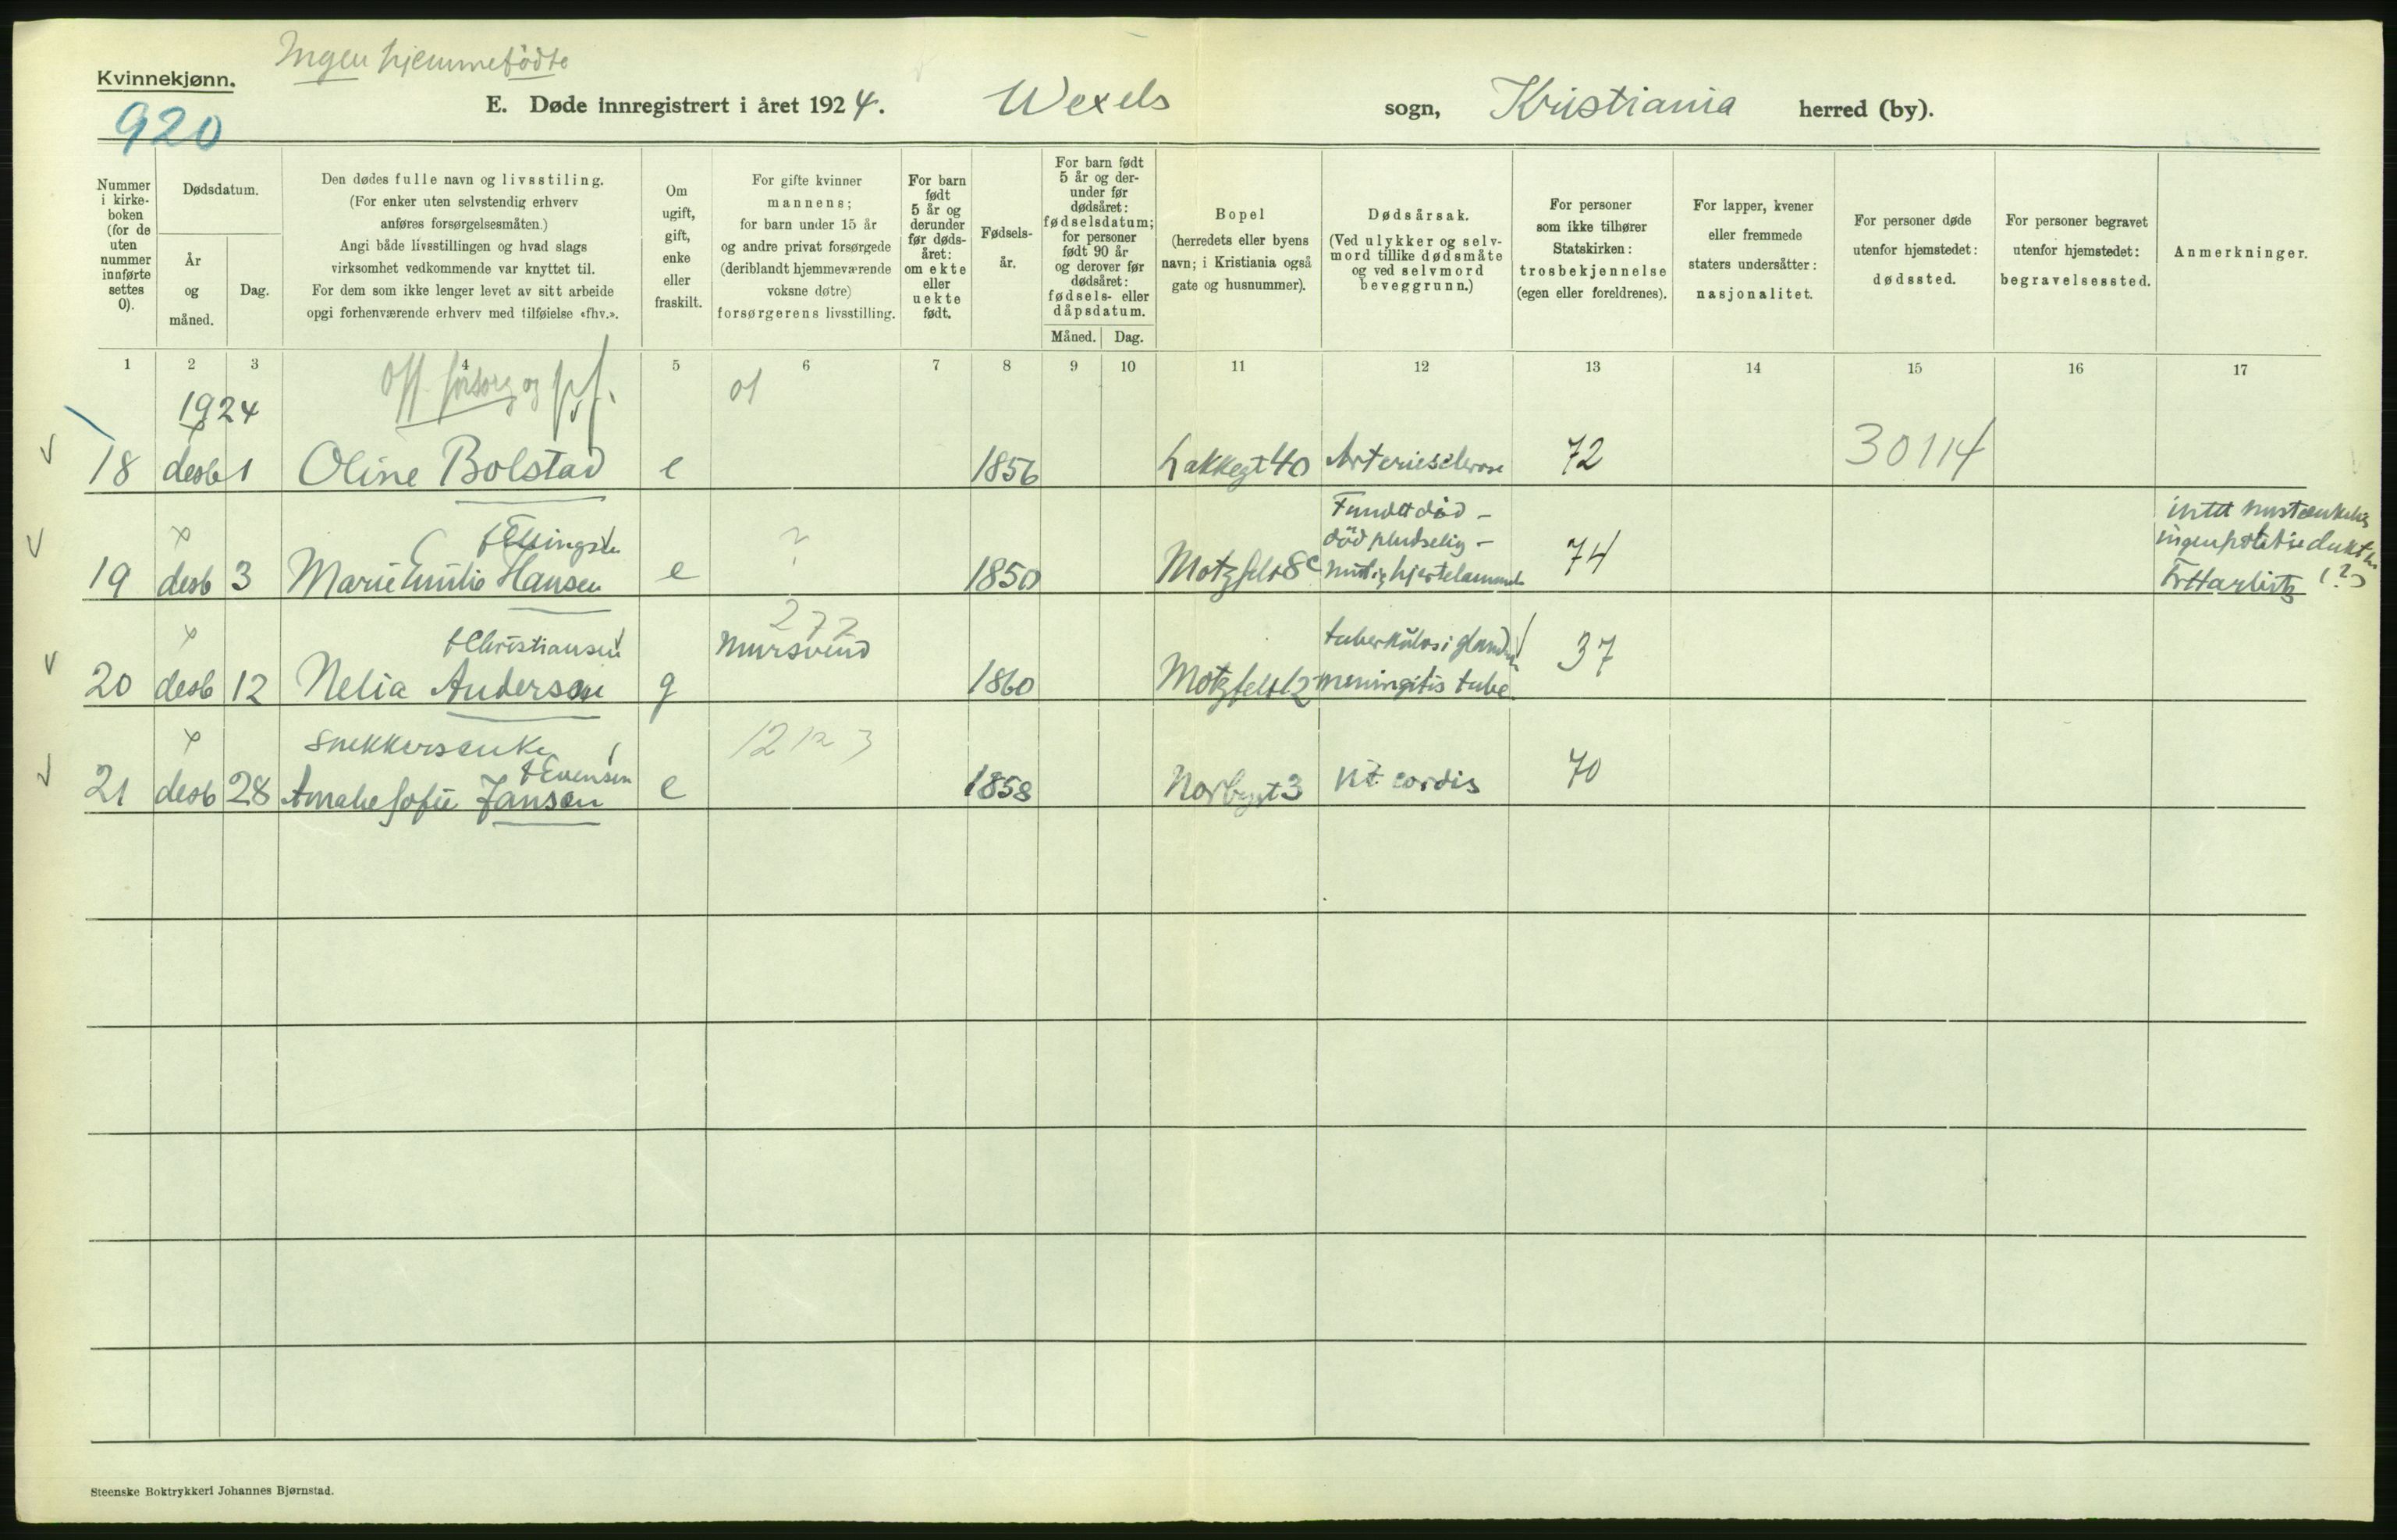 Ingen hjemmefødte
Kvinnekjønn.
920
E. Døde innregistrert i året 1924. Wexels sogn, Kristiania herred (by).
Nummer i kirkeboken (for de uten nummer innførte settes 0).
Dødsdatum.
År og måned.
Dag.
Den dødes fulle navn og livsstiling.
(For enker uten selvstendig erhverv
anføres forsørgelsesmåten.)
Angi både livsstillingen og hvad slags
virksomhet vedkommende var knyttet til.
For dem som ikke lenger levet av sitt arbeide
opgi forhenværende erhverv med tilføielse «fhv.».
Om ugift, gift, enke eller fraskilt.
For gifte kvinner
mannens;
for barn under 15 år
og andre privat forsørgede
(deriblandt hjemmeværende
voksne døtre)
forsørgerens livsstilling.
For barn født 5 år og derunder før dødsåret: om ekte eller uekte født.
Fødselsår.
For barn født 5 år og derunder før dødsåret: fødselsdatum; for personer født 90 år og derover før dødsåret: fødsels- eller dåpsdatum.
Måned. Dag.
Bopel
(herredets eller byens
navn; i Kristiania også
gate og husnummer).
Dødsårsak.
(Ved ulykker og selvmord tillike dødsmåte og ved selvmord beveggrunn.)
For personer
som ikke tilhører
Statskirken:
trosbekjennelse
(egen eller foreldrenes).
For lapper, kvener
eller fremmede
staters undersåtter:
nasjonalitet.
For personer døde
utenfor hjemstedet:
dødssted.
For personer begravet
utenfor hjemstedet:
begravelsessted.
Anmerkninger.
1 2 3 4 5 6 7 8 9 10 11 12 13 14 15 16 17
1924 Off. forsorg og 01
18 desb 1 Oline Bolstad e 1856 Lakkegt 40 Arteriesclerose 72 30114
f Ellingsen ? Fundet død –
død pludselig –
19 desb 3 Marie Emilie Hansen e 1850 Motzfelt 8c 74
272
f Christiansen Mursvend
20 desb 12 Nelia Anderson g 1860 Motzfelt 12 meningitis tube 37
Snekkersenke 12 12 3
f Evensen
21 desb 28 Amalie Sofie Jansen e 1858 Norbygt 3 vit cordis 70
Steenske Boktrykkeri Johannes Bjørnstad.